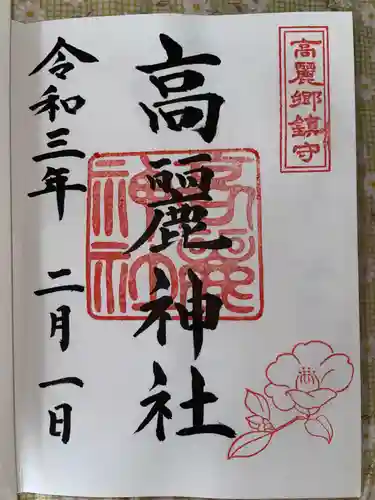 高麗郷鎮守
高麗神社
令和三年 二月一日
高麗神社